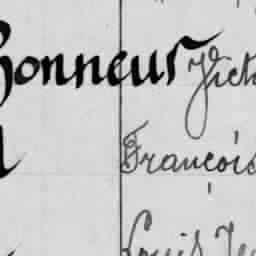 Bonneur Vict
François
Louis Je